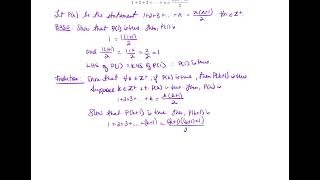 1+2+3+ ... +n = n(n+1)/2
Let P(n) be the statement 1+2+3+ ... +n = n(n+1)/2 ∀n∈Z⁺
BASIS: Show that P(1) is true. Then, P(1) is
1 = 1(1+1)/2
And 1(1+1)/2 = 2/2 = 1
LHS of P(1) = RHS of P(1) ∴ P(1) is true.
Induction: Show that ∀k∈Z⁺, if P(k) is true, then P(k+1) is true
Suppose k∈Z⁺ s.t. P(k) is true. Then, P(k) is
1+2+3+ ... +k = k(k+1)/2
Show that P(k+1) is true. Then, P(k+1) is
1+2+3+ ... +(k+1) = (k+1)((k+1)+1)/2